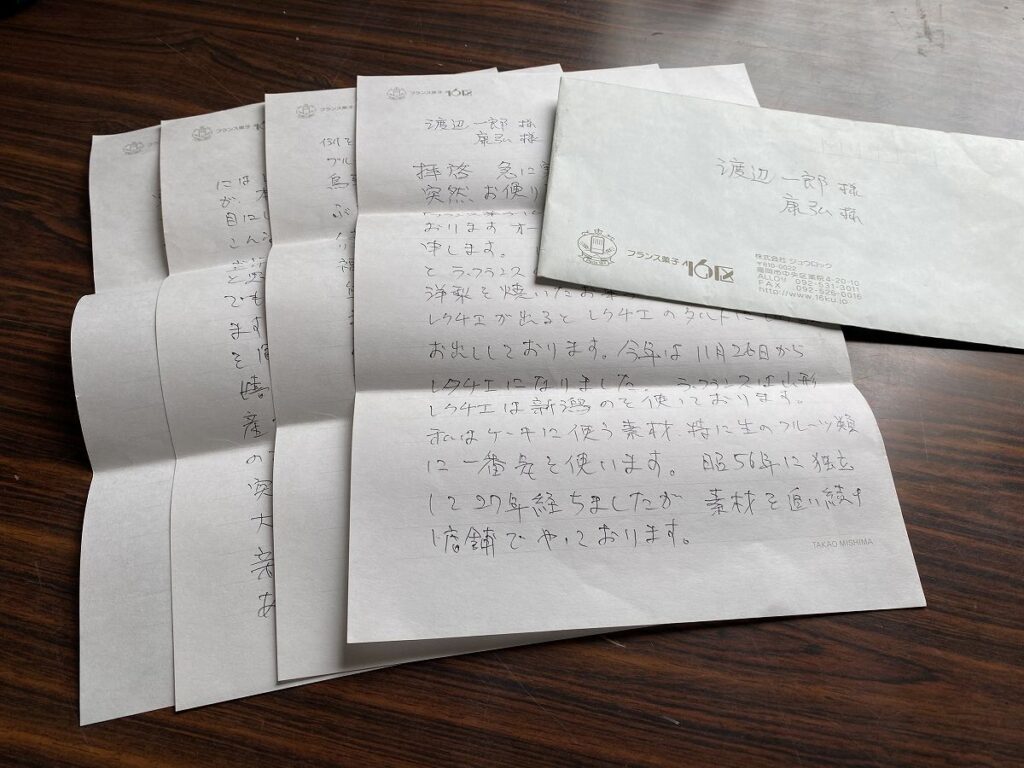 フランス菓子 16区
渡辺 一郎 様
康弘 様
拝啓 急に
突然 お便り
おります オー
申します。
と ラ・フランス
洋梨を焼いたお
レクチエが出ると レクチエのタルトに
お出ししております。今年は 11月26日から
レクチエになりました。 ラ・フランスは山形
レクチエは新潟のを使いております。
私はケーキに使う素材、特に生のフルーツ類
に一番気を使います。 昭56年に独立
して27年経ちましたが 素材を追い続け
1店舗でやっております。
TAKAO MISHIMA
渡辺 一郎 様
康弘 様
フランス菓子 16区
株式会社 ジュウロック
〒810-0022
福岡市中央区薬院4-20-10
ALLO! 092-531-3011
FAX 092-526-0016
http://www.16ku.jp
フランス菓子 16
ブル
鳥
フランス菓子 16
には
が、
目にし
こん
でも
ます
そ
産
の
突
大
あ
フランス菓子